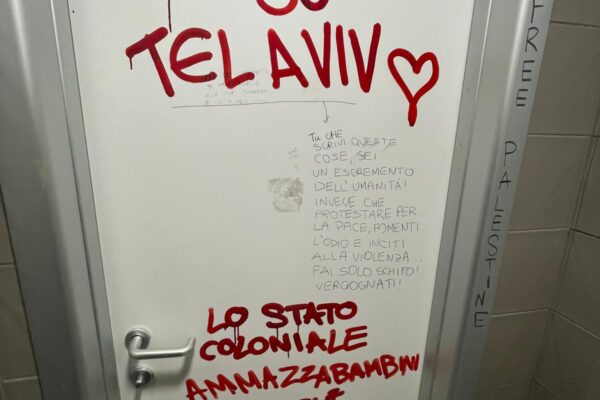 TEL AVIV
TU CHE
SCRIVI QUESTE
COSE, SEI
UN ESCREMENTO
DELL'UMANITÀ!
INVECE CHE
PROTESTARE PER
LA PACE, FOMENTI
L'ODIO E INCITI
ALLA VIOLENZA...
FAI SOLO SCHIFO!
VERGOGNATI!
LO STATO
COLONIALE
AMMAZZABAMBINI
FREE PALESTINE